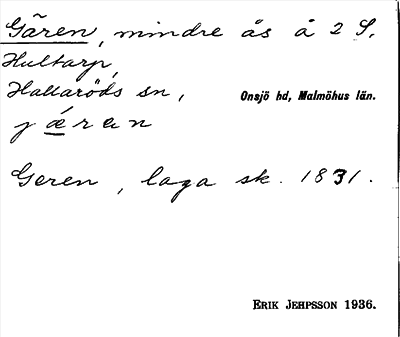 Gären, mindre ås å 2 S.
Hultarp,
Hallaröds sn, Onsjö hd, Malmöhus län.
jǽren
Geren, laga sk. 1831.
ERIK JEHPSSON 1936.